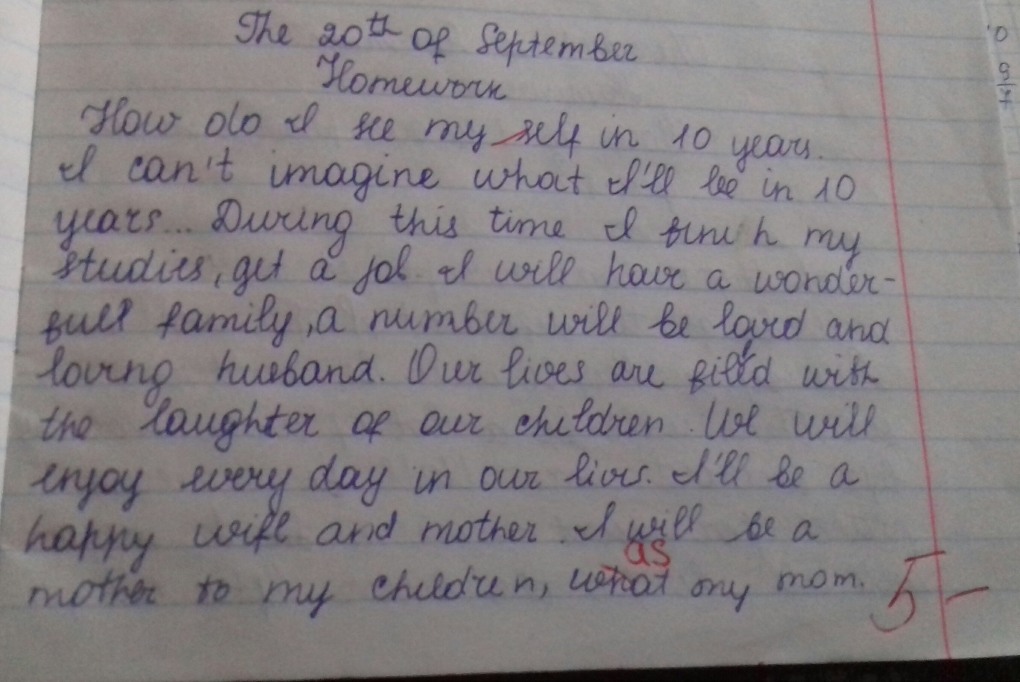 The 20th of September
Homework
How do I see my self in 10 years.
I can't imagine what I'll be in 10
years... During this time I finich my
studies, get a job. I will have a wonder-
full family, a number will be loved and
loving husband. Our lives are filled with
the laughter of our children. We will
enjoy every day in our lives. I'll be a
happy wife and mother. I will be a
as
mother to my children, what my mom.
5-